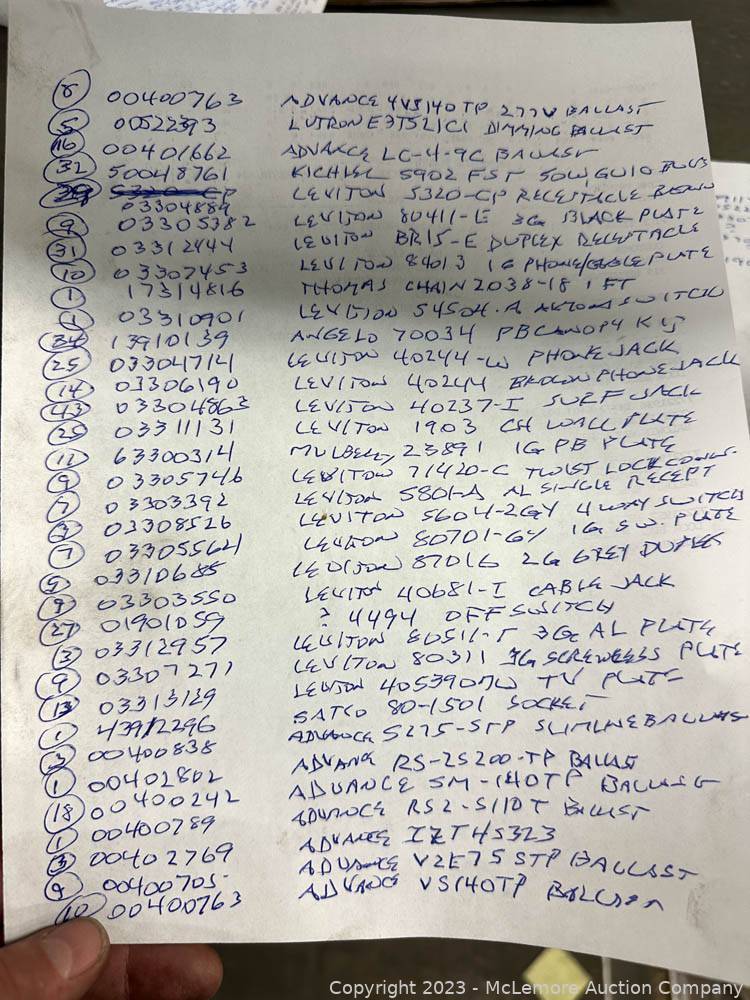 8 00400763 ADVANCE 4VS140TP 277V BALLAST
5 00522393 LUTRON E3T521C1 DIMMING BALLAST
16 00401662 ADVANCE LC-4-9C BALLAST
32 50048761 KICHLER 5902 FST 50W, GU10 BULBS
29 5320-CP
03304889 LEVITON 5320-CP RECEPTACLE BROWN
9 03305382 LEVITON 80411-E 3G BLACK PLATE
31 03312444 LEVITON BR15-E DUPLEX RECEPTACLE
10 03307453 LEVITON 84013 1G PHONE/CABLE PLATE
1 17314816 THOMAS CHAIN 2038-18 1 FT
1 03310901 LEVITON 54504-A SWITCH
34 13910139 ANGELO 70034 PB CANOPY KIT
25 03304714 LEVITON 40244-W PHONE JACK
14 03306190 LEVITON 40244 BROWN PHONE JACK
43 03304863 LEVITON 40237-I SURF JACK
25 03311131 LEVITON 1903 CH WALL PLATE
11 63300314 MULBERRY 23891 1G PB PLATE
9 03305746 LEVITON 71420-C TWIST LOCK CONN.
7 03303392 LEVITON 5801-A AL SINGLE RECEPT
03308526 LEVITON 5604-2GY 4 WAY SWITCH
7 03305564 LEVITON 80701-GY 1G SW. PLATE
5 03310685 LEVITON 87016 2G GREY DUPLEX
9 03303550 LEVITON 40681-I CABLE JACK
27 01901059 ? 4494 OFF SWITCH
3 03312957 LEVITON 80511-T 3G AL PLATE
9 03307271 LEVITON 80311 3G SCREWLESS PLATE
13 03313129 LEVITON 40539 TV PLATE
1 43912296 SATCO 80-1501 SOCKET
3 00400838 ADVANCE S275-STP SLIMLINE BALLAST
1 00402802 ADVANCE RS-2S200-TP BALLAST
18 00400242 ADVANCE SM-140TP BALLAST
1 00400789 ADVANCE RS2-S110T BALLAST
3 00402769 ADVANCE IZT4S323
9 00400705 ADVANCE V2E75 STP BALLAST
10 00400763 ADVANCE VS140TP BALLAST
Copyright 2023 - McLemore Auction Company